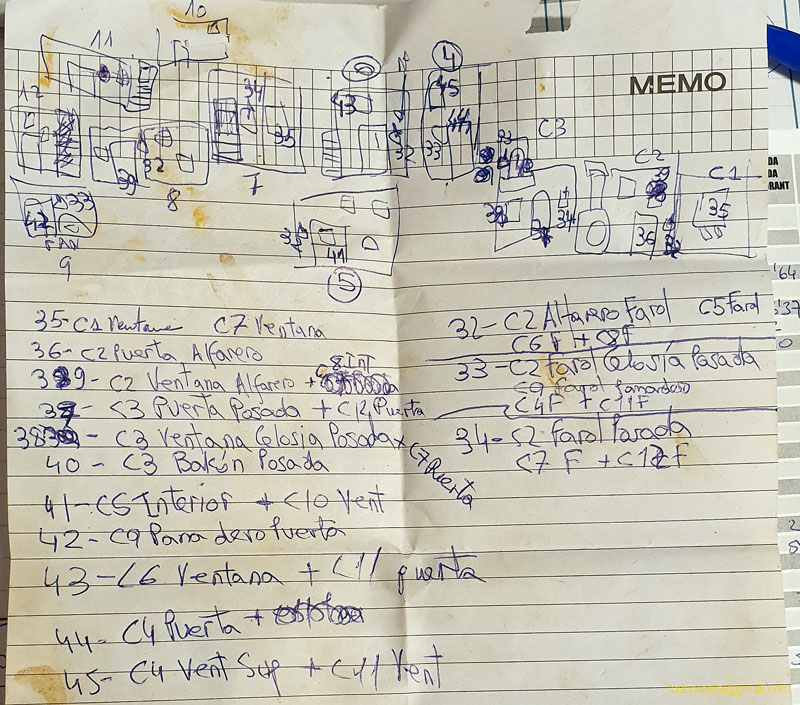 10
11
12
MEMO
6
4
34
43
45
44
35
32
33
C3
C2
C1
39
32
8
7
9
5
41
36
35
34
33
35-C1 Ventana C7 Ventana
36-C2 Puerta Alfarero
39-C2 Ventana Alfarero + C8 INT
37- C3 Puerta Posada + C12 Puerta
38 - C3 Ventana Celosia Posada x C7 Puerta
40 - C3 Balcón Posada
41-C5 Interior + C10 Vent
42-C9 Panadero Puerta
43-C6 Ventana + C11 puerta
44- C4 Puerta +
45- C4 Vent Sup + C11 Vent
32-C2 Alfarero Farol C5 Farol
C6 F + C8F
33-C2 Farol Celosía Posada
C9 Farol
C4F + C11F
34-C2 Farol Posada
C7 F + C12F
'64
'37
0
DA
DA
RANT